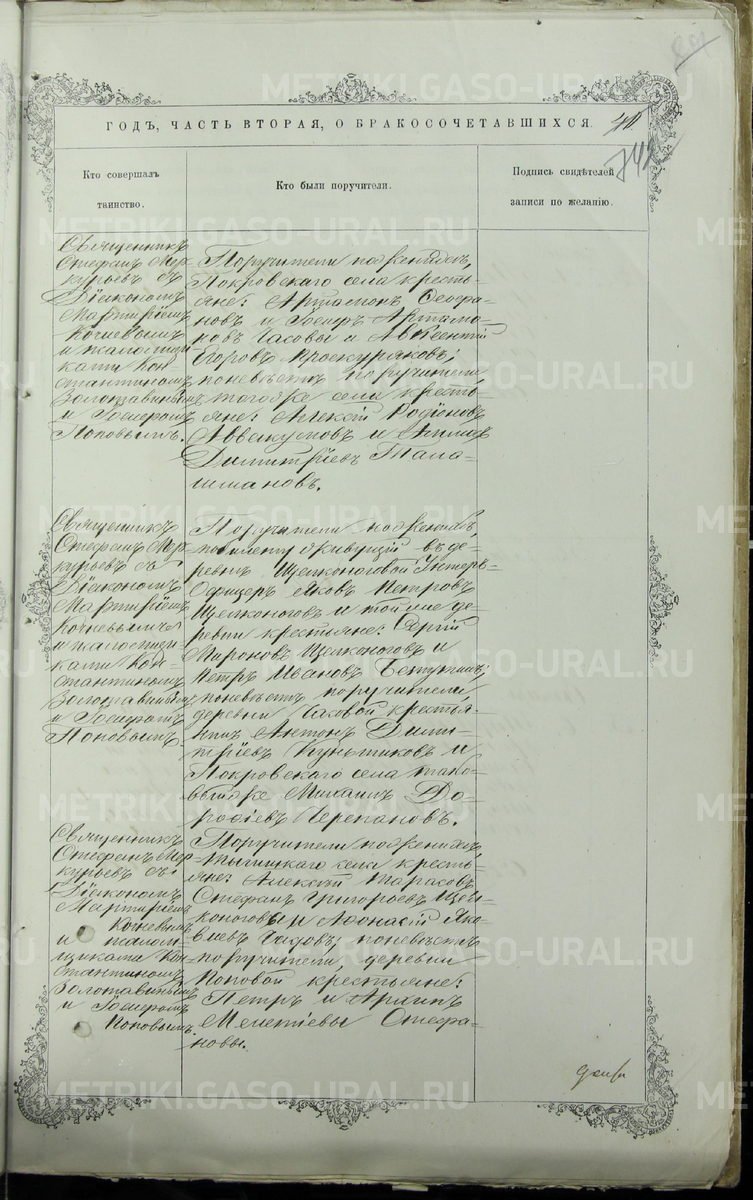 ГОДЪ, ЧАСТЬ ВТОРАЯ, О БРАКОСОЧЕТАВШИХСЯ.
742
Кто совершалъ
таинство.
Кто были поручители.
Подпись свидѣтелей
записи по желанію.
Священникъ
Стефанъ Мер-
курьевъ съ
Діакономъ
Мартиріемъ
Кочневымъ
и
Кон-
стантиномъ
и Іосифомъ
Поповымъ.
Поручители по женихѣ,
Покровскаго села кресть-
яне: Артамонъ
новъ и Іосифъ Артамо-
новъ Часовы и Авксентій
Егоровъ Проскуряковъ;
по невѣстѣ поручители
тогоже села кресть-
яне: Алексій Родіоновъ
Аввакумовъ и
Димитріевъ Тала-
шмановъ.
Священникъ
Стефанъ Мер-
курьевъ съ
Діакономъ
Мартиріемъ
Кочневымъ
и
Кон-
стантиномъ
и Іосифомъ
Поповымъ
Поручители по женихѣ,
живущій въ де-
ревнѣ Щелконоговой Унтеръ-
Офицеръ Яковъ Петровъ
Щелконоговъ и той же де-
ревни крестьяне: Сергій
Мироновъ Щелконоговъ и
Петръ Ивановъ
по невѣстѣ поручители
деревни Часовой крестья-
нинъ Антонъ Дими-
тріевъ и
Покровскаго села тако-
выйже Михаилъ До-
роѳіевъ Черепановъ.
Священникъ
Стефанъ Мер-
курьевъ съ
Діакономъ
Мартиріемъ
Кочневымъ
и
Кон-
стантиномъ
и Іосифомъ
Поповымъ.
Поручители по женихѣ,
села кресть-
яне: Алексій Тарасовъ
Стефанъ Григорьевъ Щел-
коноговы и Аѳонасій Яко-
влевъ по невѣстѣ
поручители, деревни
Поповой крестьяне:
Петръ и
Мелетіевы Стефа-
новы.
METRIKI.GASO-URAL.RU